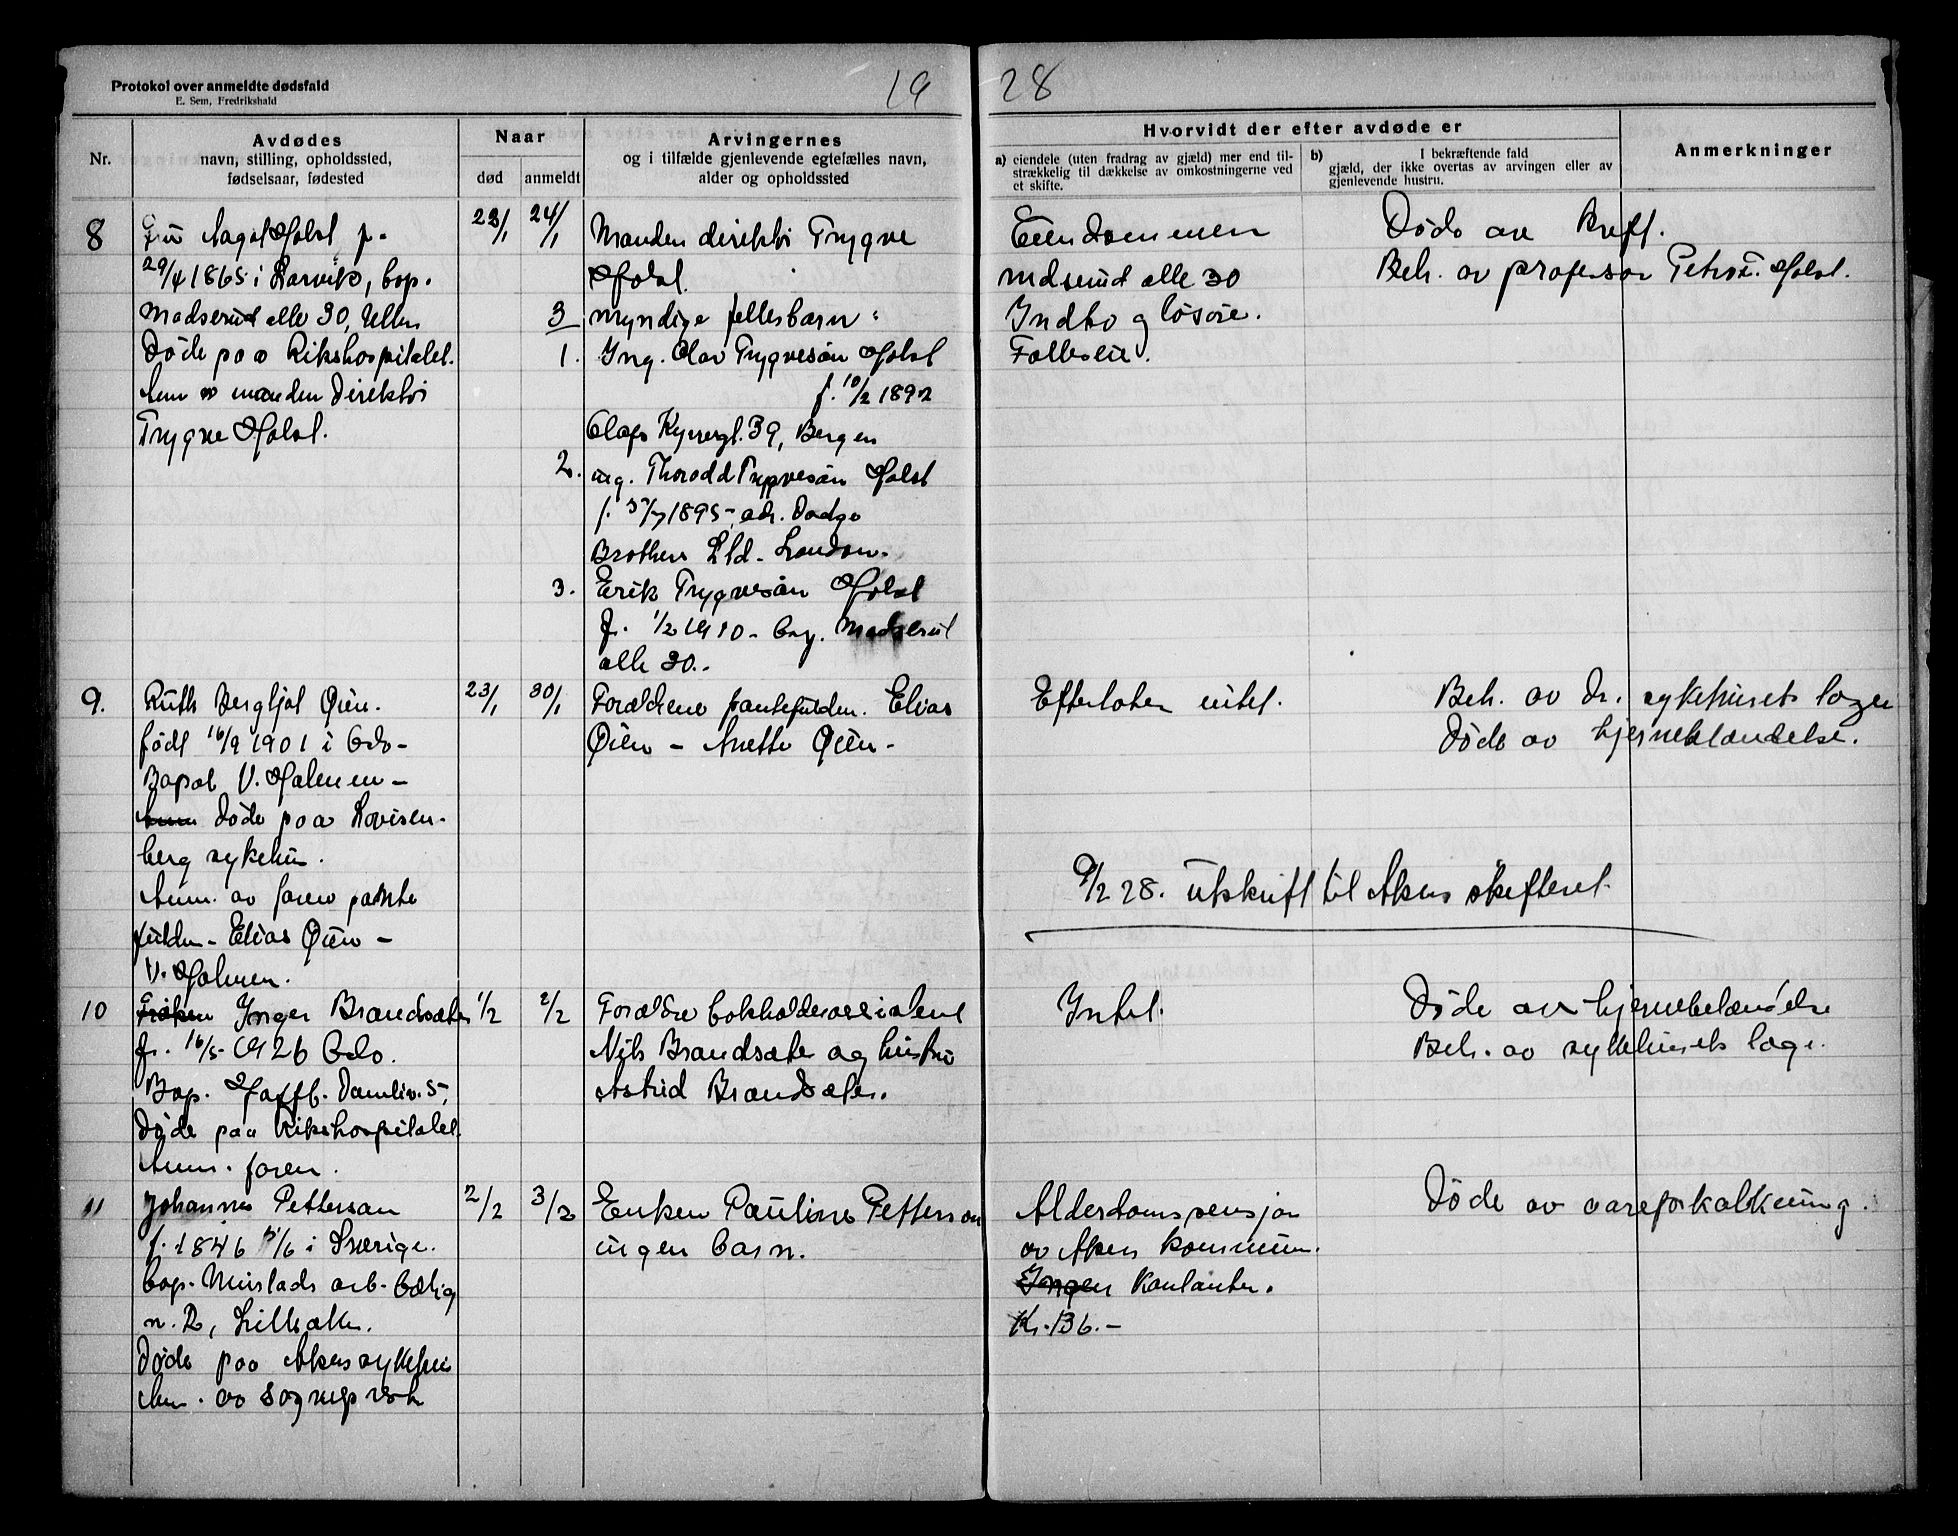 Protokol over anmeldte dødsfald
E. Sem, Fredrikshald
19 28
Nr.
Avdødes
navn, stilling, opholdssted,
fødselsaar, fødested
Naar
død
anmeldt
Arvingernes
og i tilfælde gjenlevende egtefælles navn,
alder og opholdssted
Hvorvidt der efter avdøde er
a) eiendele (uten fradrag av gjæld) mer end til-
strækkelig til dækkelse av omkostningerne ved
et skifte.
b) I bekræftende fald
gjæld, der ikke overtas av arvingen eller av
gjenlevende hustru.
Anmerkninger
8
Fru Aagot Holst f.
29/4 1865 i Larvik, bop.
Madserud alle 30, Ullern
Døde paa Rikshospitalet.
Anm av manden Direktør
Trygve Holst.
23/1
24/1
Manden direktør Trygve
Holst.
3 myndige fellesbarn:
1. Ing. Olav Trygvesøn Holst
f. 10/2 1892
Olafs Kyrresgt. 39, Bergen
2. ing. Thorodd Trygvesøn Holst
f. 3/7 1895, adr. Dodge
Brothers Ltd. London.
3. Erik Trygvesøn Holst
f. 1/2 1910 - bop. Madserud
alle 30.
Eiendommen
Madserud alle 30
Indbo og løsøre.
Fælleseie.
Døde av kreft.
Beh. av professor Peter F. Holst.
9.
Ruth Bergljot Øien.
født 16/9 1901 i Oslo -
Bopæl V. Holmen -
Anm Døde paa Lovisen-
berg sykehus.
Anm. av faren pante
fuldm - Elias Øien -
V. Holmen.
23/1
30/1
Forældrene pantefuldm. Elias
Øien - Anette Øien -
Efterlater intet.
Beh. av Dr. sykehusets læge
Døde av hjernebetændelse.
9/2 28. Utskrift til Akers skifteret.
10
Frøken Inger Brandsæter
f. 16/5 1926 Oslo.
Bop. Hoffsb. Damliv. 5,
Døde paa Rikshospitalet.
Anm. faren.
1/2
2/2
Forældre bokholderassistent
Nils Brandsæter og hustru
Astrid Brandsæter.
Intet.
Døde av hjernebetændelse
Beh. av sykehusets læge.
11
Johannes Petterson
f. 1846 /6 i Sverige.
bop. Mustads arb. bolig
n. 2, Lilleaker.
Døde paa Akers sykehus
Anm. av Sogneprest
2/2
3/2
Enken Pauline Petterson
ingen barn.
Alderdomspensjon
av Akers kommune.
Ingen Kontanter.
Kr. 136.-
Døde av aareforkalkning.